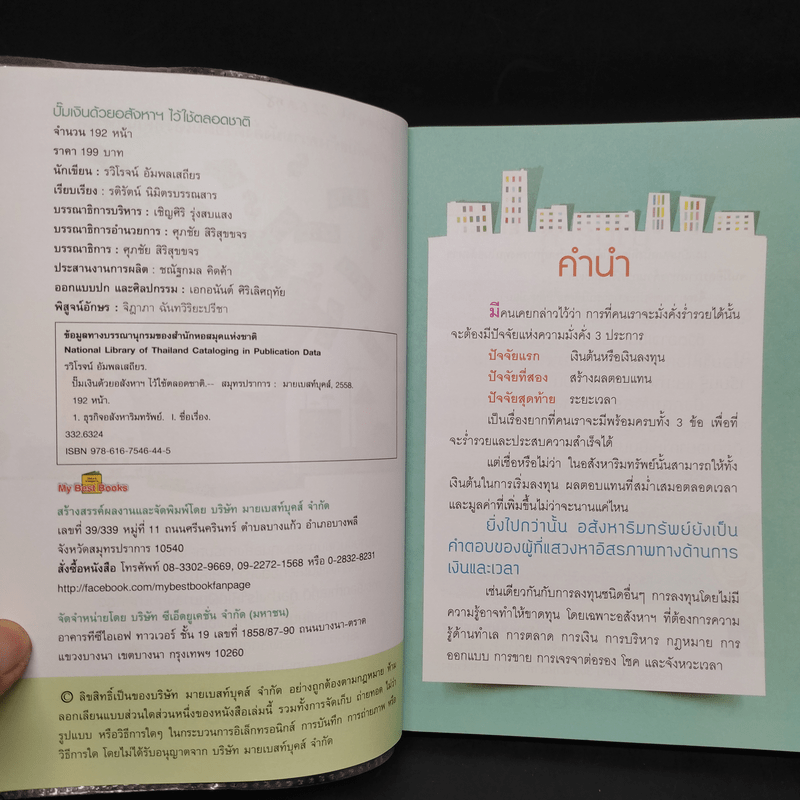 ปั๊มเงินด้วยอสังหาฯ ไว้ใช้ตลอดชาติ
จำนวน 192 หน้า
ราคา 199 บาท
นักเขียน : รวิโรจน์ อัมพลเสถียร
เรียบเรียง : รติรัตน์ นิมิตรบรรณสาร
บรรณาธิการบริหาร : เชิญศิริ รุ่งสบแสง
บรรณาธิการอำนวยการ : ศุภชัย สิริสุขขจร
บรรณาธิการ : ศุภชัย สิริสุขขจร
ประสานงานการผลิต : ชณัฐกมล คิดค้า
ออกแบบปก และศิลปกรรม : เอกอนันต์ ศิริเลิศฤทัย
พิสูจน์อักษร : จิฏาภา ฉันทวิริยะปรีชา
ข้อมูลทางบรรณานุกรมของสำนักหอสมุดแห่งชาติ
National Library of Thailand Cataloging in Publication Data
รวิโรจน์ อัมพลเสถียร.
ปั๊มเงินด้วยอสังหาฯ ไว้ใช้ตลอดชาติ.-- สมุทรปราการ : มายเบสท์บุคส์, 2558.
192 หน้า.
1. ธุรกิจอสังหาริมทรัพย์. I. ชื่อเรื่อง.
332.6324
ISBN 978-616-7546-44-5
My Best Books
สร้างสรรค์ผลงานและจัดพิมพ์โดย บริษัท มายเบสท์บุคส์ จำกัด
เลขที่ 39/339 หมู่ที่ 11 ถนนศรีนครินทร์ ตำบลบางแก้ว อำเภอบางพลี
จังหวัดสมุทรปราการ 10540
สั่งซื้อหนังสือ โทรศัพท์ 08-3302-9669, 09-2272-1568 หรือ 0-2832-8231
http://facebook.com/mybestbookfanpage
จัดจำหน่ายโดย บริษัท ซีเอ็ดยูเคชั่น จำกัด (มหาชน)
อาคารทีซีไอเอฟ ทาวเวอร์ ชั้น 19 เลขที่ 1858/87-90 ถนนบางนา-ตราด
แขวงบางนา เขตบางนา กรุงเทพฯ 10260
© ลิขสิทธิ์เป็นของบริษัท มายเบสท์บุคส์ จำกัด อย่างถูกต้องตามกฎหมาย ห้าม
ลอกเลียนแบบส่วนใดส่วนหนึ่งของหนังสือเล่มนี้ รวมทั้งการจัดเก็บ ถ่ายทอด ไม่ว่า
รูปแบบ หรือวิธีการใดๆ ในกระบวนการอิเล็กทรอนิกส์ การบันทึก การถ่ายภาพ หรือ
วิธีการใด โดยไม่ได้รับอนุญาตจาก บริษัท มายเบสท์บุคส์ จำกัด
คำนำ
มีคนเคยกล่าวไว้ว่า การที่คนเราจะมั่งคั่งร่ำรวยได้นั้น
จะต้องมีปัจจัยแห่งความมั่งคั่ง 3 ประการ
ปัจจัยแรก เงินต้นหรือเงินลงทุน
ปัจจัยที่สอง สร้างผลตอบแทน
ปัจจัยสุดท้าย ระยะเวลา
เป็นเรื่องยากที่คนเราจะมีพร้อมครบทั้ง 3 ข้อ เพื่อที่
จะร่ำรวยและประสบความสำเร็จได้
แต่เชื่อหรือไม่ว่า ในอสังหาริมทรัพย์นั้นสามารถให้ทั้ง
เงินต้นในการเริ่มลงทุน ผลตอบแทนที่สม่ำเสมอตลอดเวลา
และมูลค่าที่เพิ่มขึ้นไม่ว่าจะนานแค่ไหน
ยิ่งไปกว่านั้น อสังหาริมทรัพย์ยังเป็น
คำตอบของผู้ที่แสวงหาอิสรภาพทางด้านการ
เงินและเวลา
เช่นเดียวกันกับการลงทุนชนิดอื่นๆ การลงทุนโดยไม่มี
ความรู้อาจทำให้ขาดทุน โดยเฉพาะอสังหาฯ ที่ต้องการความ
รู้ด้านทำเล การตลาด การเงิน การบริหาร กฎหมาย การ
ออกแบบ การขาย การเจรจาต่อรอง โชค และจังหวะเวลา